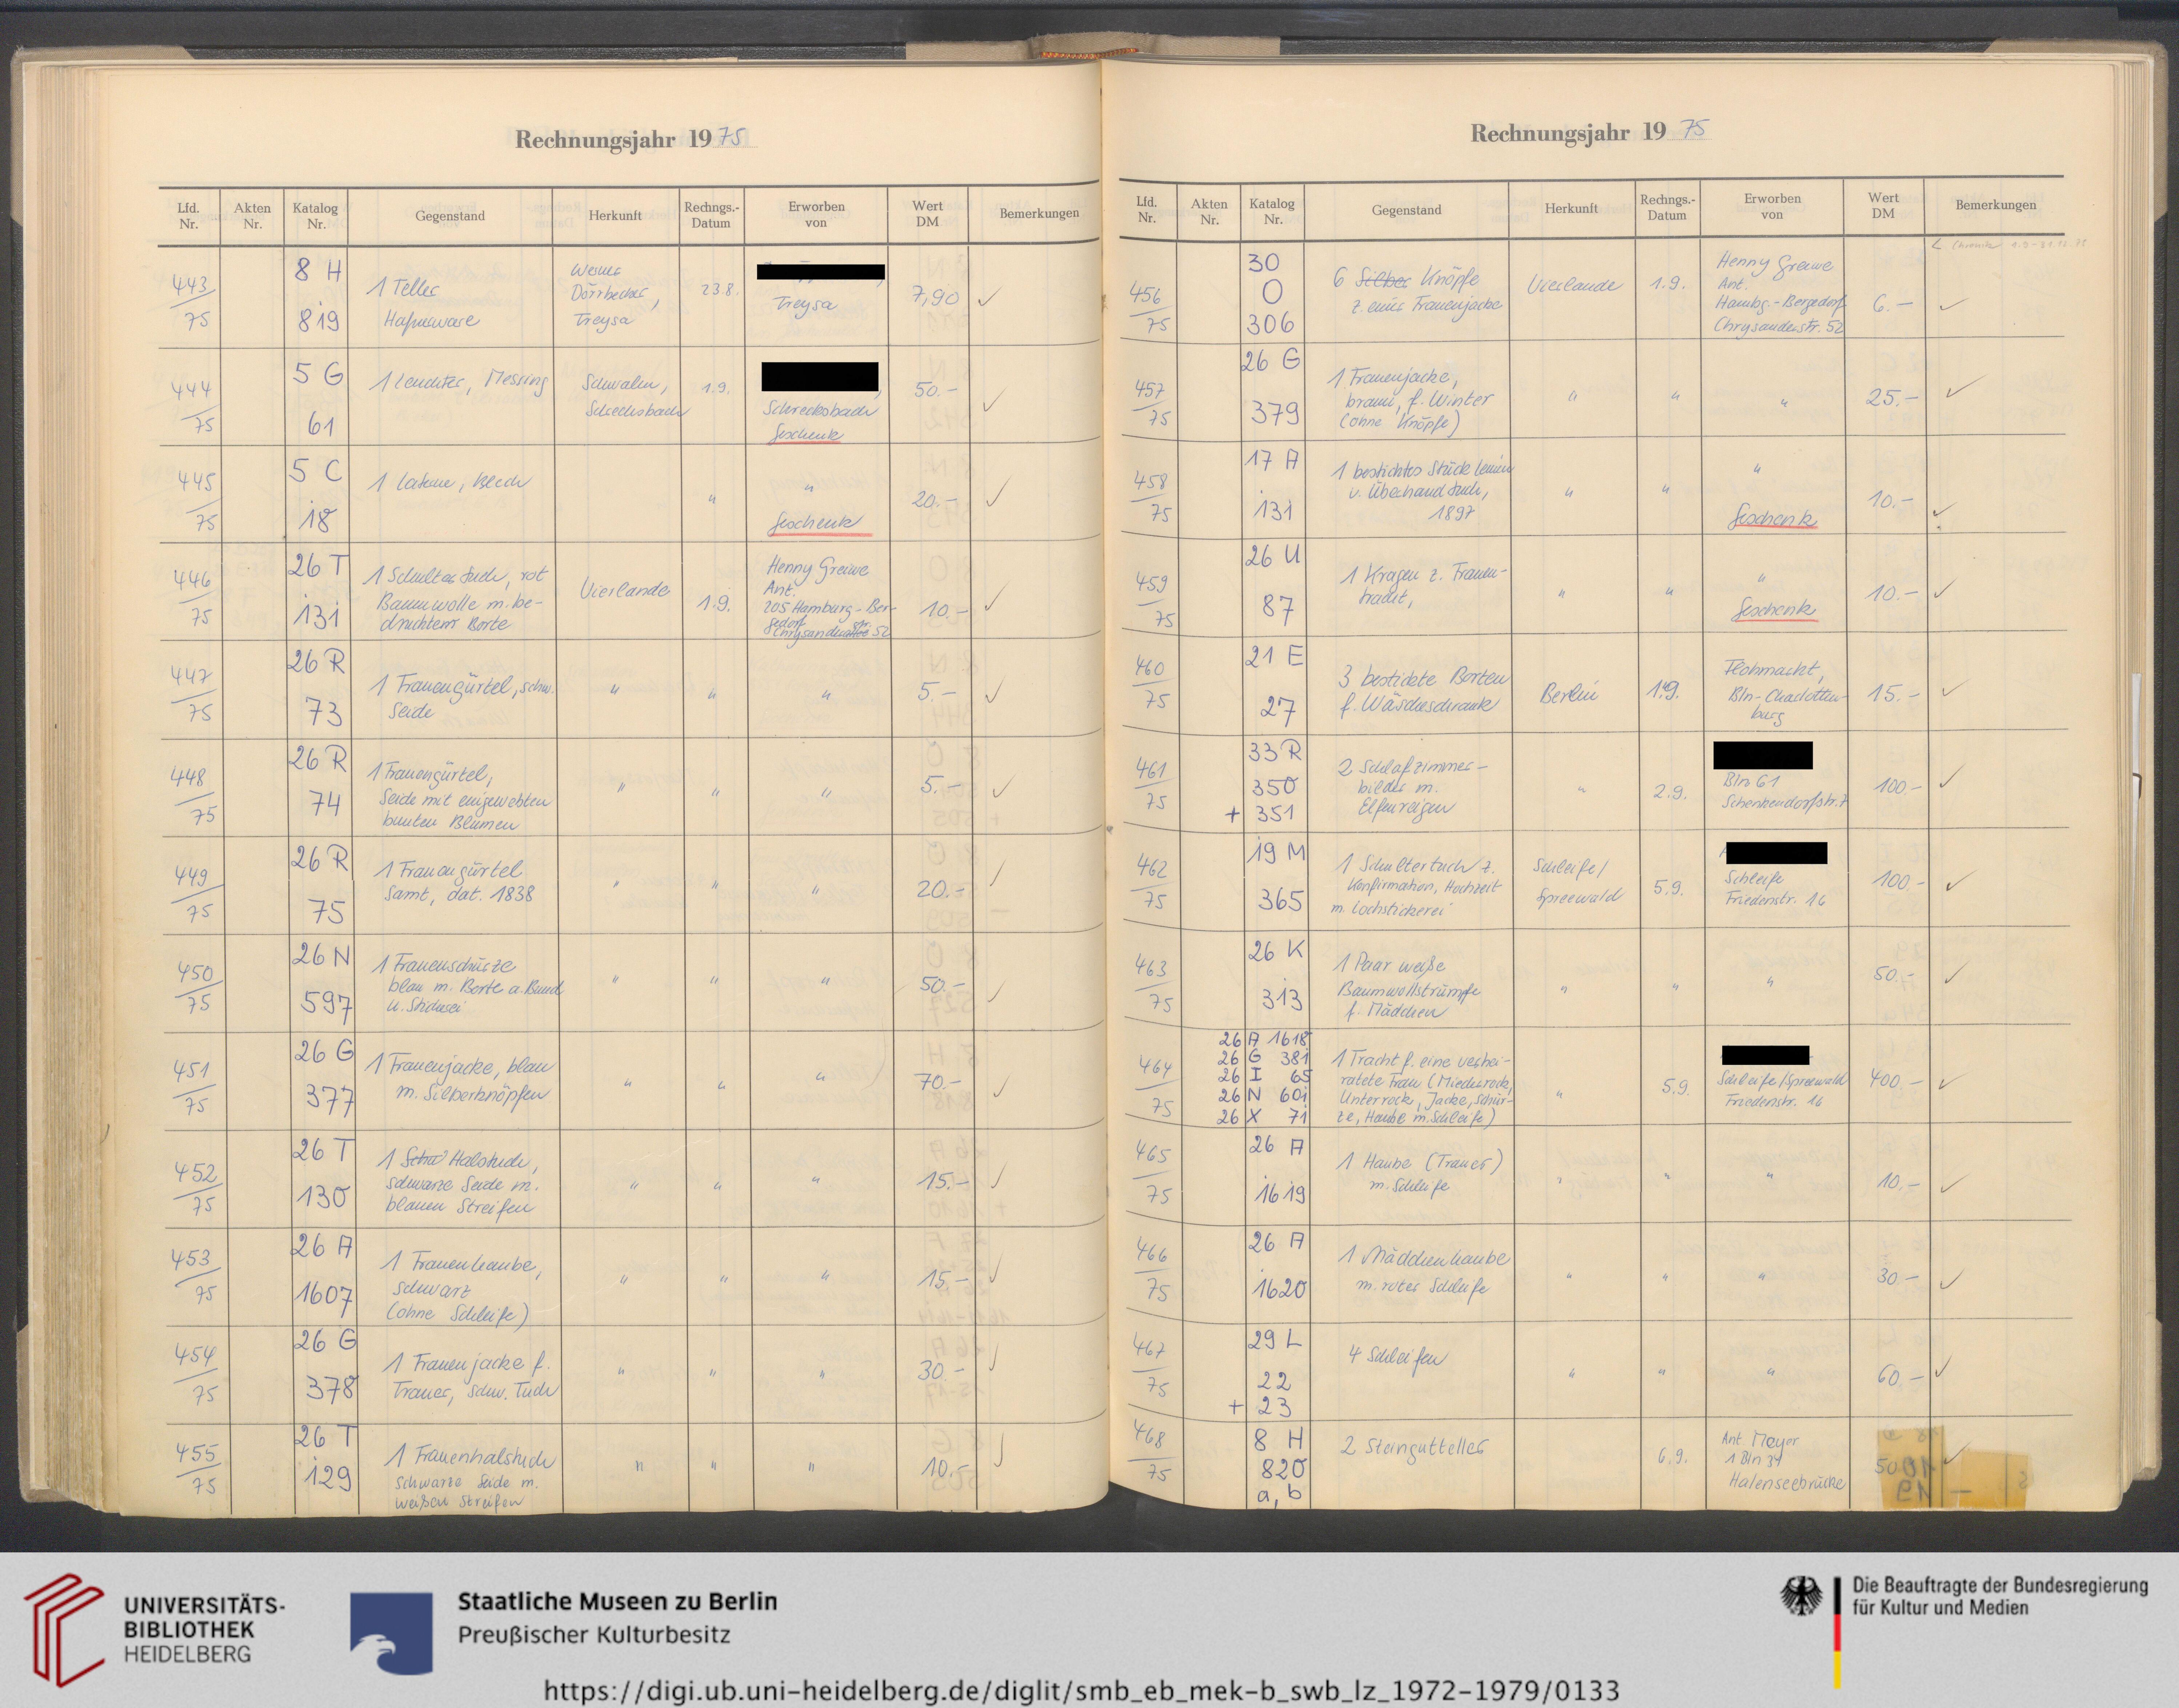 Rechnungsjahr 1975
Lfd. Nr.
Akten Nr.
Katalog Nr.
Gegenstand
Herkunft
Rechngs.-Datum
Erworben von
Wert DM
Bemerkungen
443/75
8 H
819
1 Teller
Hafnerware
Werner
Dörrbecker,
Treysa
23.8.
Treysa
7,90 ✓
444/75
5 G
61
1 Leuchter, Messing
Schwalm,
Schrecksbach
1.9.
Schrecksbach
Geschenk
50.- ✓
445/75
5 C
18
1 Laterne, Blech
"
"
Geschenk
20.- ✓
446/75
26 T
131
1 Schultertuch, rot
Baumwolle m. be-
druckter Borte
Vierlande
1.9.
Henny Greiwe
Ant.
205 Hamburg-Ber-
gedorf
Chrysanderstr. 52
10.- ✓
447/75
26 R
73
1 Frauengürtel, schw.
Seide
"
"
"
5.- ✓
448/75
26 R
74
1 Frauengürtel,
Seide mit eingewebten
bunten Blumen
"
"
"
5.- ✓
449/75
26 R
75
1 Frauengürtel
Samt, dat. 1838
"
"
"
20.- ✓
450/75
26 N
597
1 Frauenschürze
blau m. Borte a. Bund
u. Stickerei
"
"
"
50.- ✓
451/75
26 G
377
1 Frauenjacke, blau
m. Silberknöpfen
"
"
"
70.- ✓
452/75
26 T
130
1 Halstuch,
schwarze Seide m.
blauen Streifen
"
"
"
15.- ✓
453/75
26 A
1607
1 Frauenhaube,
schwarz
(ohne Schleife)
"
"
"
15.- ✓
454/75
26 G
378
1 Frauenjacke f.
Trauer, schw. Tuch
"
"
"
30.- ✓
455/75
26 T
129
1 Frauenhalstuch
schwarze Seide m.
weißen Streifen
"
"
"
10.- ✓
Rechnungsjahr 1975
Lfd. Nr.
Akten Nr.
Katalog Nr.
Gegenstand
Herkunft
Rechngs.-Datum
Erworben von
Wert DM
Bemerkungen
456/75
30
O
306
6 Silber Knöpfe
z. einer Frauenjacke
Vierlande
1.9.
Henny Greiwe
Ant.
Hambg.-Bergedorf
Chrysanderstr. 52
6.- ✓
457/75
26 G
379
1 Frauenjacke,
braun, f. Winter
(ohne Knöpfe)
"
"
"
25.- ✓
458/75
17 A
131
1 besticktes Stück Leinen
v. Überhandtuch,
1897
"
"
"
Geschenk
10.- ✓
459/75
26 U
87
1 Kragen z. Frauen-
tracht,
"
"
"
Geschenk
10.- ✓
460/75
21 E
27
3 bestickte Borten
f. Wäscheschrank
Berlin
1.9.
Flohmarkt,
Bln-Charlotten-
burg
15.- ✓
461/75
33 R
350
+ 351
2 Schlafzimmer-
bilder m.
Elfenreigen
"
2.9.
Bln 61
Schenkendorfstr. 7
100.- ✓
462/75
19 M
365
1 Schultertuch z.
Konfirmation, Hochzeit
m. Lochstickerei
Schleife/
Spreewald
5.9.
Schleife
Friedenstr. 16
100.- ✓
463/75
26 K
313
1 Paar weiße
Baumwollstrümpfe
f. Mädchen
"
"
"
50.- ✓
464/75
26 A 1618
26 G 381
26 I 65
26 N 601
26 X 71
1 Tracht f. eine verhei-
ratete Frau (Miederrock,
Unterrock, Jacke, Schür-
ze, Haube m. Schleife)
"
5.9.
Schleife/Spreewald
Friedenstr. 16
400.- ✓
465/75
26 A
1619
1 Haube (Trauer)
m. Schleife
"
"
"
10.- ✓
466/75
26 A
1620
1 Mädchenhaube
m. roter Schleife
"
"
"
30.- ✓
467/75
29 L
22
+ 23
4 Schleifen
"
"
"
60.- ✓
468/75
8 H
820
a, b
2 Steingutteller
6.9.
Ant. Meyer
1 Bln 31
Halenseebrücke
✓
UNIVERSITÄTS-
BIBLIOTHEK
HEIDELBERG
Staatliche Museen zu Berlin
Preußischer Kulturbesitz
Die Beauftragte der Bundesregierung
für Kultur und Medien
https://digi.ub.uni-heidelberg.de/diglit/smb_eb_mek-b_swb_lz_1972-1979/0133